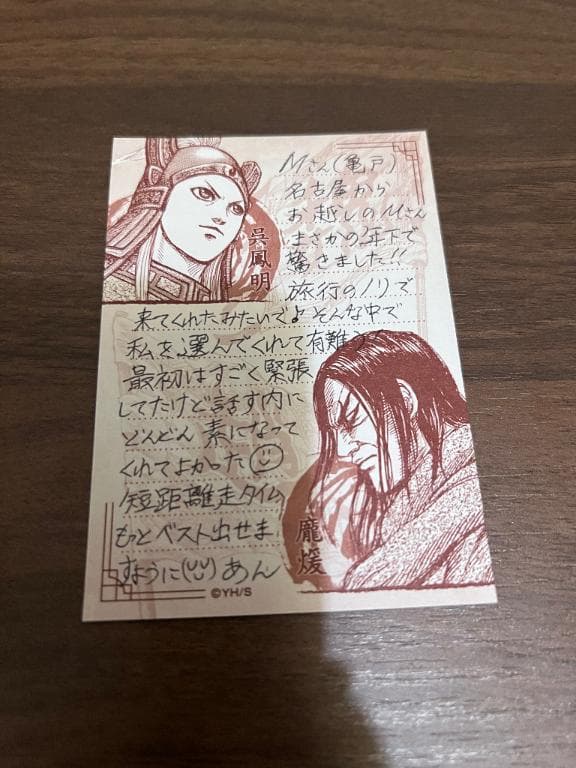 Mさん(亀戸)
名古屋から
お越しのMさん
まさかの年下で
驚きました!!
旅行のノリで
来てくれたみたいでよ そんな中で
私を選んでくれて有難う
最初はすごく緊張
してたけど話す内に
どんどん 素になって
くれてよかった
短距離走タイム
もっとベスト出せま
すように(UU) あん
呉鳳明
龐煖
©YH/S